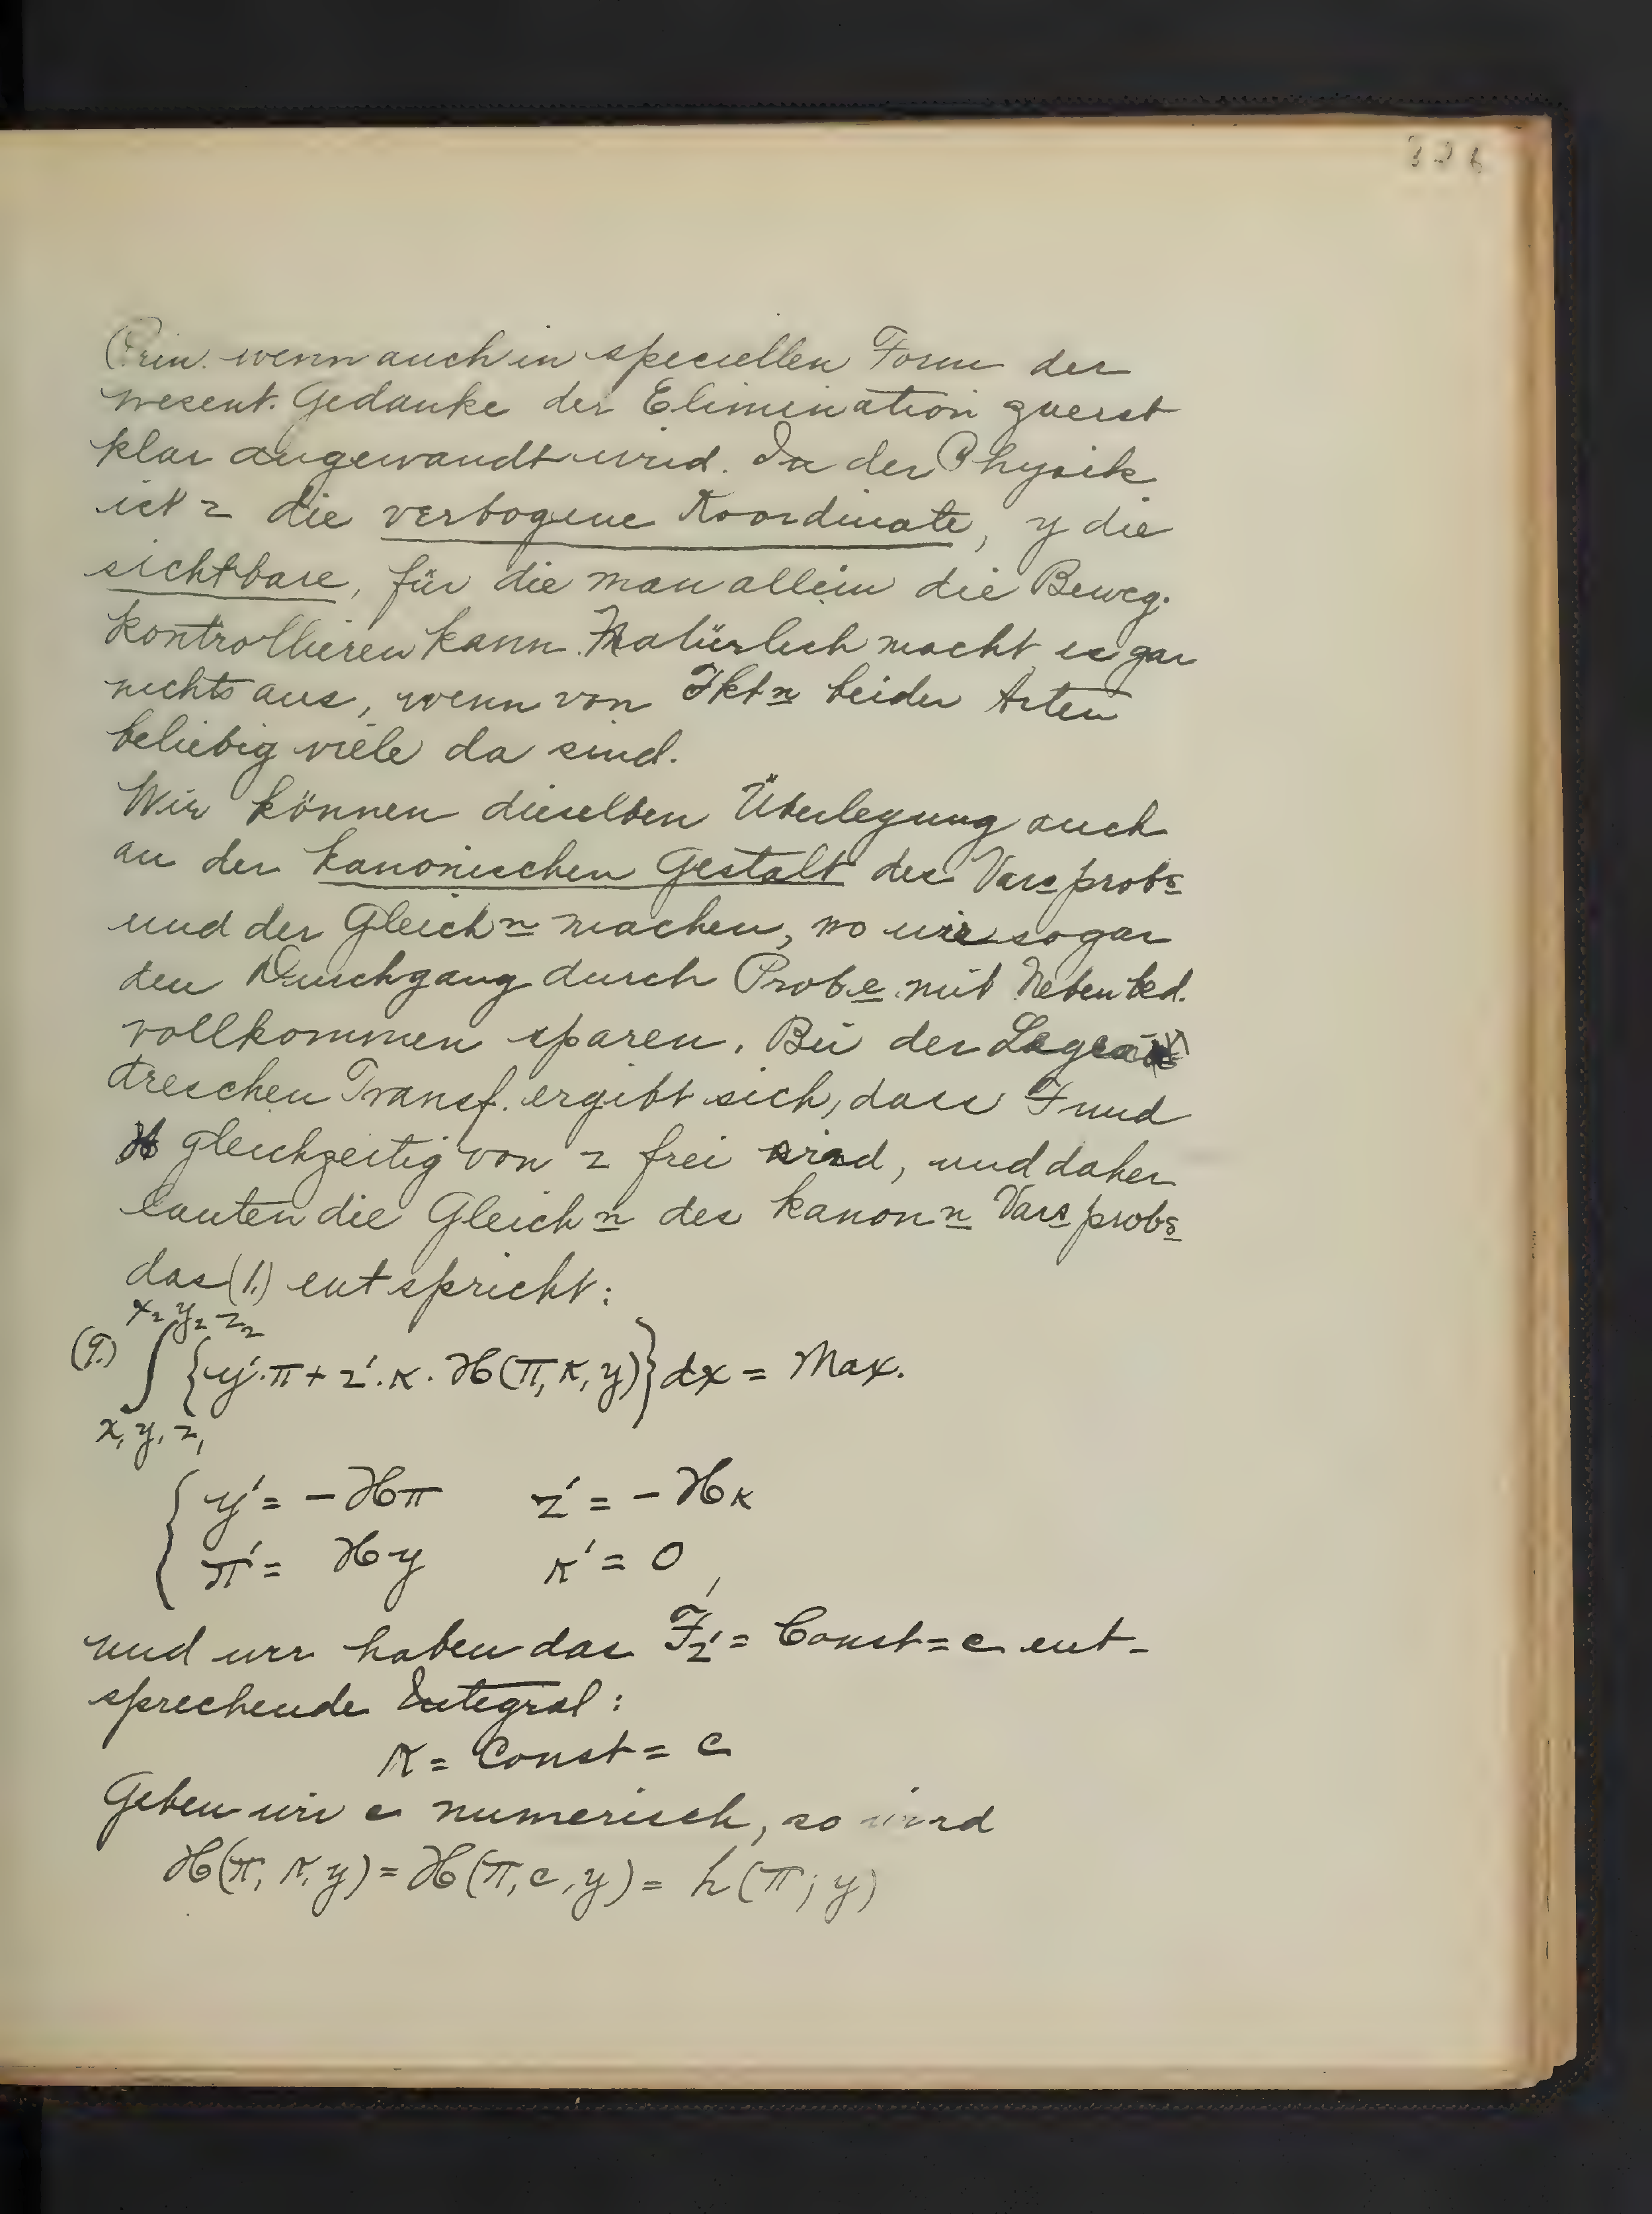 Prin. wenn auch in speciellen Form der
wesent. Gedanke der Elimination zuerst
klar angewandt wird. In der Physik
ist z die verbogene Koordinate, y die
sichtbare, für die man allein die Beweg.
kontrollieren kann. Natürlich macht es gar
nichts aus, wenn von Fktn beider Arten
beliebig viele da sind.
Wir können dieselben Überlegung auch
an der kanonischen Gestalt des Varsprobs
und der Gleichn machen, wo wir sogar
den Durchgang durch Probe mit Nebenbed.
vollkommen sparen. Bei der
dreschen Transf. ergibt sich, dass F und
H gleichzeitig von z frei sind, und daher
lauten die Gleichn des kanonn Varsprobs
das (1.) entspricht:
x₂ y₂ z₂
(9.) ∫ {y'·π + z'·κ· H(π, κ, y)} dx = Max.
x₁ y₁ z₁
{ y' = - Hπ z' = - Hκ
π' = Hy κ' = 0,
und wir haben das F_z' = Const = c ent-
sprechende Integral:
κ = Const = c
Geben wir c numerisch, so wird
H(π, κ, y) = H(π, c, y) = h(π; y)